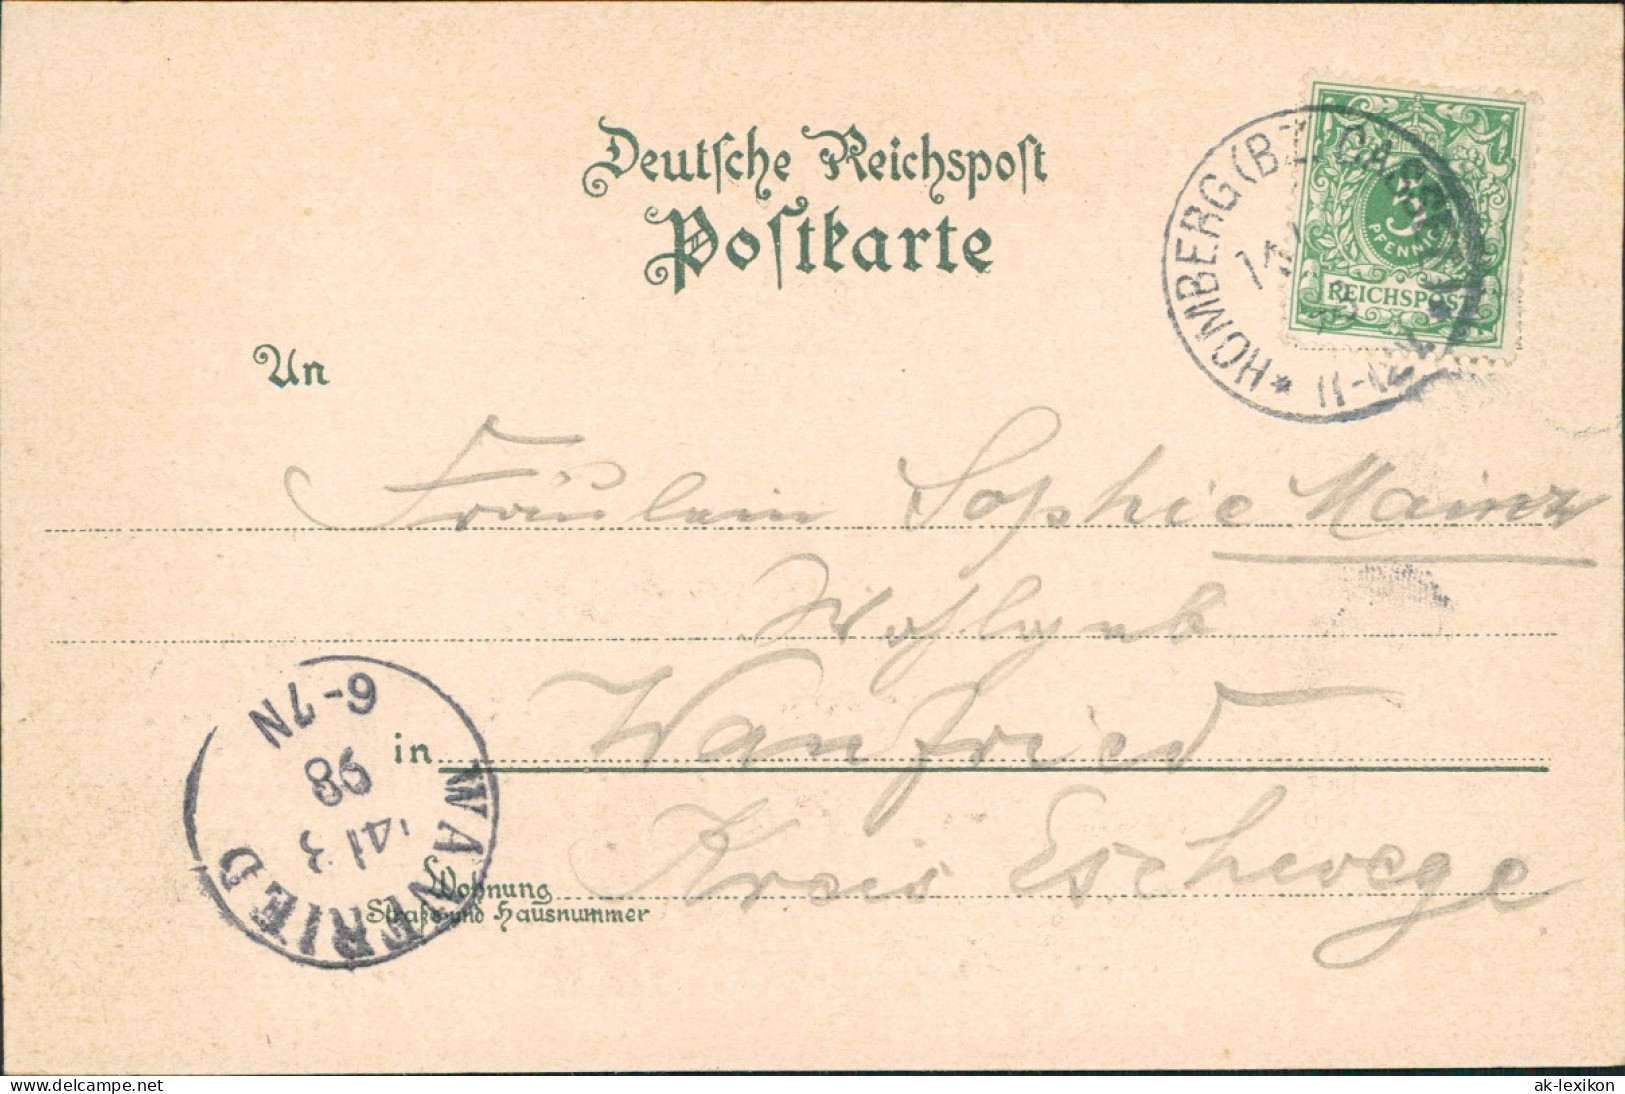 Deutsche Reichspost
Postkarte
HOMBERG (BZ. CASSEL)
11-12
5
PFENNIG
REICHSPOST
An
Fräulein Sophie Mainz
Wohlgeb
in Wanfried
Kreis Eschwege
Wohnung
Straße und Hausnummer
WANFRIED
14 3
98
6-7N
www.delcampe.net
ak-lexikon